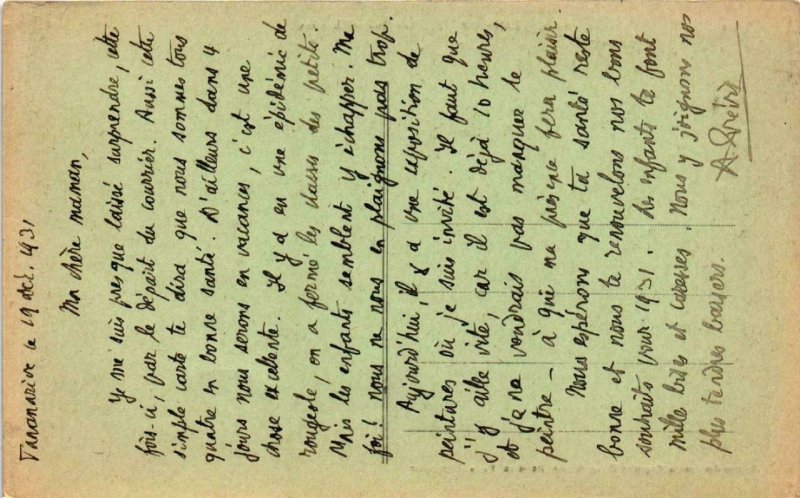 Tananarive le 19 déc. 1931
Ma chère maman,
Je me suis presque laissé surprendre, cette
fois-ci, par le départ du courrier. Aussi cette
simple carte te dira que nous sommes tous
quatre en bonne santé. D'ailleurs dans 4
jours nous serons en vacances, c'est une
chose excellente. Il y a eu une épidémie de
rougeole, on a fermé les classes des petits.
Mais les enfants semblent y échapper. Ma
foi! nous ne nous en plaignons pas trop.
Aujourd'hui, il y a une exposition de
peintures où je suis invité. Il faut que
j'y aille vite, car il est déjà 10 heures,
et je ne voudrais pas manquer le
peintre – à qui ma présence fera plaisir
Nous espérons que ta santé reste
bonne et nous te renouvelons nos bons
souhaits pour 1931. Les enfants te font
mille bises et caresses. Nous y joignons nos
plus tendres baisers.